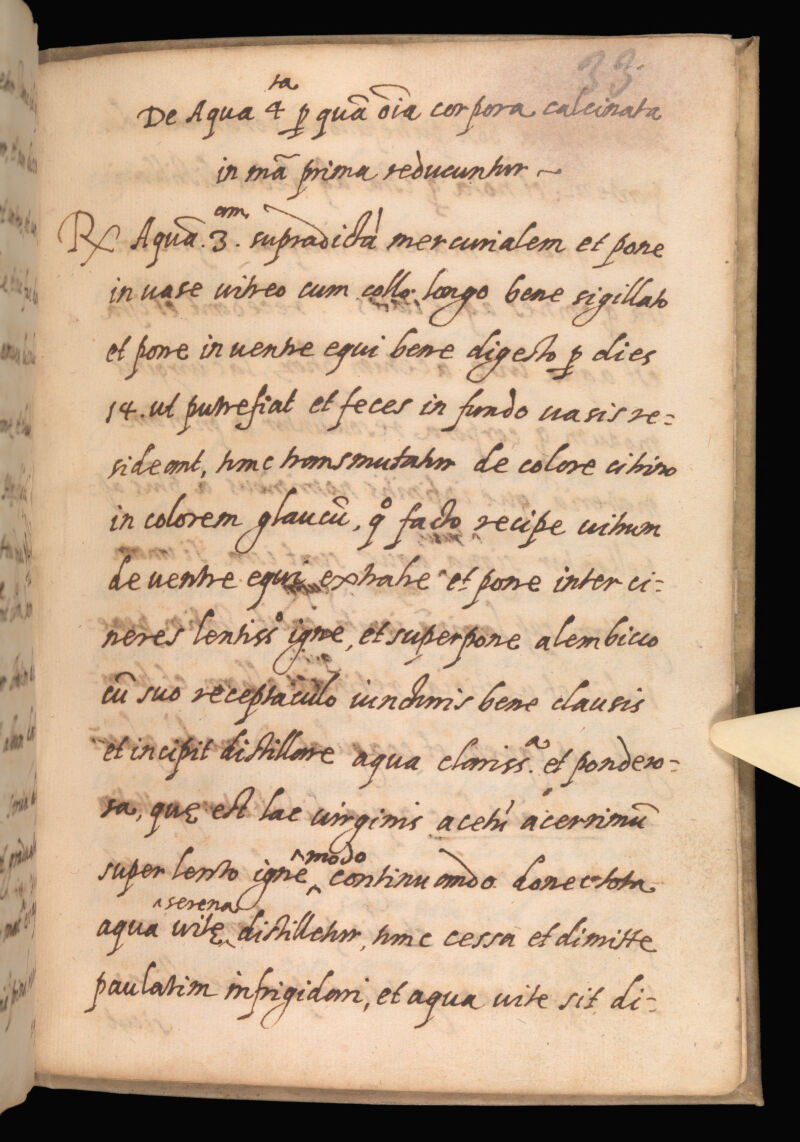 33
De Aqua 4ta p quã õia corpora calcinata
in mã prima reducuntur ~
Rx Aquã. 3am. supradictã mercurialem et pone
in uase uitreo cum collo longo bene sigillato
et pone in uentre equi bene digesto p dies
14. ut putrefiat et feces in fundo uasis re=
sideant, tunc transmutatur de colore citrino
in colorem glaucũ, qº facto recipe uitrum
de uentre equi extrahe et pone inter ci=
neres lentissº igne, et superpone alembicco
cũ suo receptaculo iuncturis bene clausis
et incipit distillare aqua clarissª. et pondero=
sa, quę est lac uirginis acetũ acerrimũ
super lento igne modo continuando donec tota
aqua uitę serena distilletur, tunc cessa et dimitte
paulatim infrigidari, et aqua uite sit di=